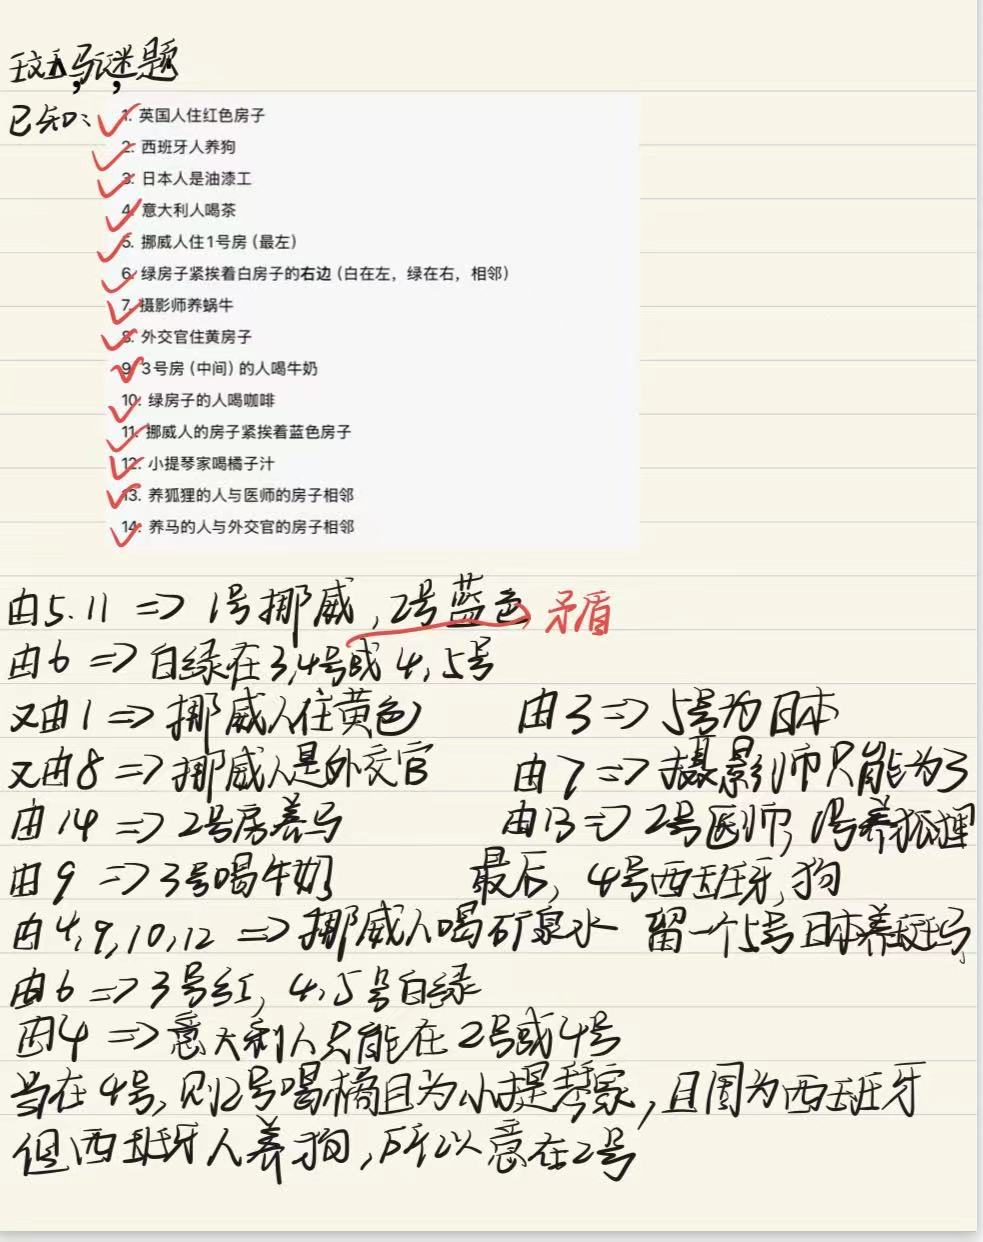 斑马谜题
已知:
1. 英国人住红色房子
2. 西班牙人养狗
3. 日本人是油漆工
4. 意大利人喝茶
5. 挪威人住1号房（最左）
6. 绿房子紧挨着白房子的右边（白在左，绿在右，相邻）
7. 摄影师养蜗牛
8. 外交官住黄房子
9. 3号房（中间）的人喝牛奶
10. 绿房子的人喝咖啡
11. 挪威人的房子紧挨着蓝色房子
12. 小提琴家喝橘子汁
13. 养狐狸的人与医师的房子相邻
14. 养马的人与外交官的房子相邻
由5.11 => 1号挪威,2号蓝色 矛盾
由6 => 白绿在3,4号或4,5号
又由1 => 挪威人住黄色
又由8 => 挪威人是外交官
由14 => 2号房养马
由9 => 3号喝牛奶
由4,9,10,12 => 挪威人喝矿泉水
由6 => 3号红,4,5号白绿
由4 => 意大利人只能在2号或4号
当在4号,则2号喝橘且为小提琴家,且因为西班牙
但西班牙人养狗,所以意在2号
由3 => 5号为日本
由7 => 摄影师只能为3
由13 => 2号医师,1号养狐狸
最后,4号西班牙,狗
留一个5号日本养斑马